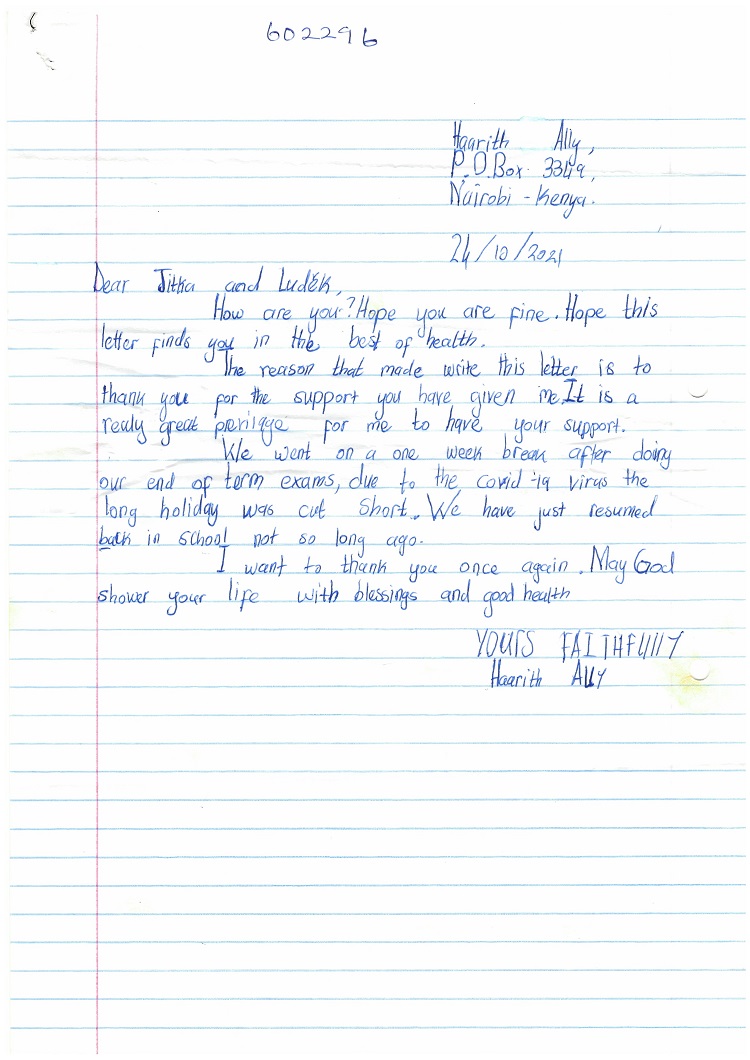 602296
Haarith Ally,
P.O.Box 3349,
Nairobi - Kenya.
24/10/2021
Dear Jitka and Luděk,
How are you? Hope you are fine. Hope this
letter finds you in the best of health.
The reason that made write this letter is to
thank you for the support you have given me. It is a
realy great privilage for me to have your support.
We went on a one week break after doing
our end of term exams, due to the covid-19 virus the
long holiday was cut short. We have just resumed
back in school not so long ago.
I want to thank you once again. May God
shower your life with blessings and good health
YOURS FAITHFULLY
Haarith Ally